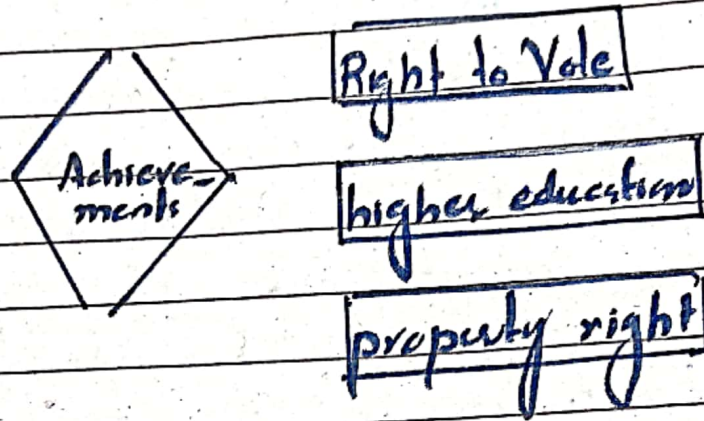 Achieve-
ments
Right to Vote
higher education
property right